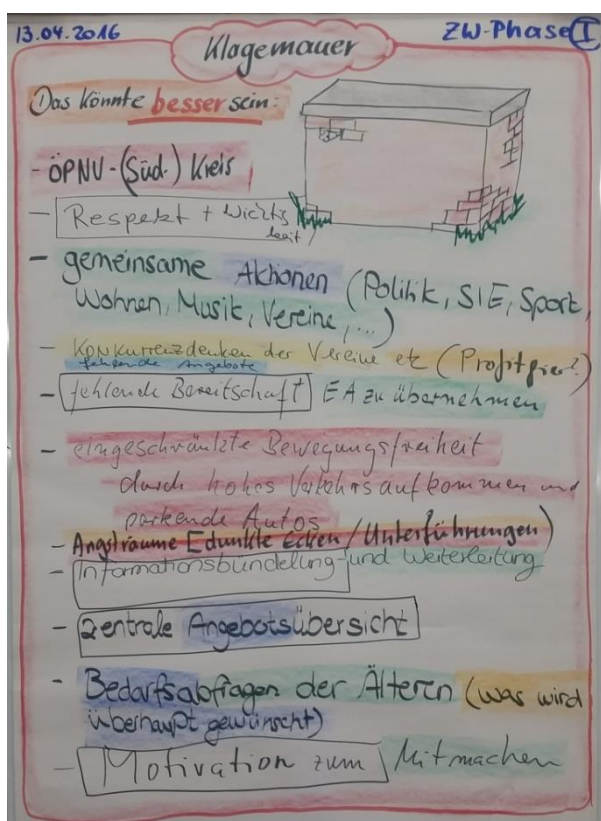 13.04.2016
ZW-Phase I
Klagemauer
Das könnte besser sein:
- ÖPNV-(Süd-) Kreis
- Respekt +
- gemeinsame Aktionen (Politik, SIE, Sport,
Wohnen, Musik, Vereine, ...)
- Konkurrenzdenken der Vereine etc (Profitgier?)
fehlende Angebote
- fehlende Bereitschaft EA zu übernehmen
- eingeschränkte Bewegungsfreiheit
durch hohes Verkehrsaufkommen und
parkende Autos
- Angsträume [dunkle Ecken/Unterführungen)
- Informationsbündelung und Weiterleitung
- Zentrale Angebotsübersicht
- Bedarfsabfragen der Älteren (was wird
überhaupt gewünscht)
- Motivation zum Mitmachen